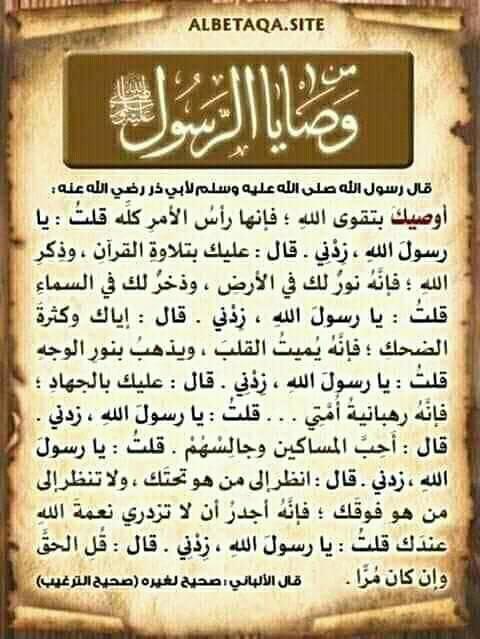 ALBETAQA.SITE
من وصايا الرسول ﷺ
قال رسول الله صلى الله عليه وسلم لأبي ذر رضي الله عنه :
أوصيكَ بتقوى اللهِ ؛ فإنها رأسُ الأمرِ كلِّه قلتُ : يا
رسولَ اللهِ ، زِدْنِي . قال : عليك بتلاوةِ القرآنِ ، وذِكرِ
اللهِ ؛ فإنَّهُ نورٌ لك في الأرضِ ، وذخرٌ لك في السماءِ
قلتُ : يا رسولَ اللهِ ، زِدْنِي . قال : إياك وكثرةَ
الضحكِ ؛ فإنَّهُ يُميتُ القلبَ ، ويذهبُ بنورِ الوجهِ
قلتُ : يا رسولَ اللهِ ، زِدْنِي . قال : عليك بالجهادِ ؛
فإنَّه رهبانيةُ أُمَّتِي . . . قلتُ : يا رسولَ اللهِ ، زدني .
قال : أَحِبَّ المساكين وجالِسْهُمْ . قلتُ : يا رسولَ
اللهِ ، زدني . قال : انظر إلى من هو تحتَك ، ولا تنظر إلى
من هو فوقَك ؛ فإنَّهُ أجدرُ أن لا تزدري نعمةَ اللهِ
عندك قلتُ : يا رسولَ اللهِ ، زِدْنِي . قال : قُلِ الحقَّ
وإن كان مُرًّا . قال الألباني : صحيح لغيره (صحيح الترغيب)